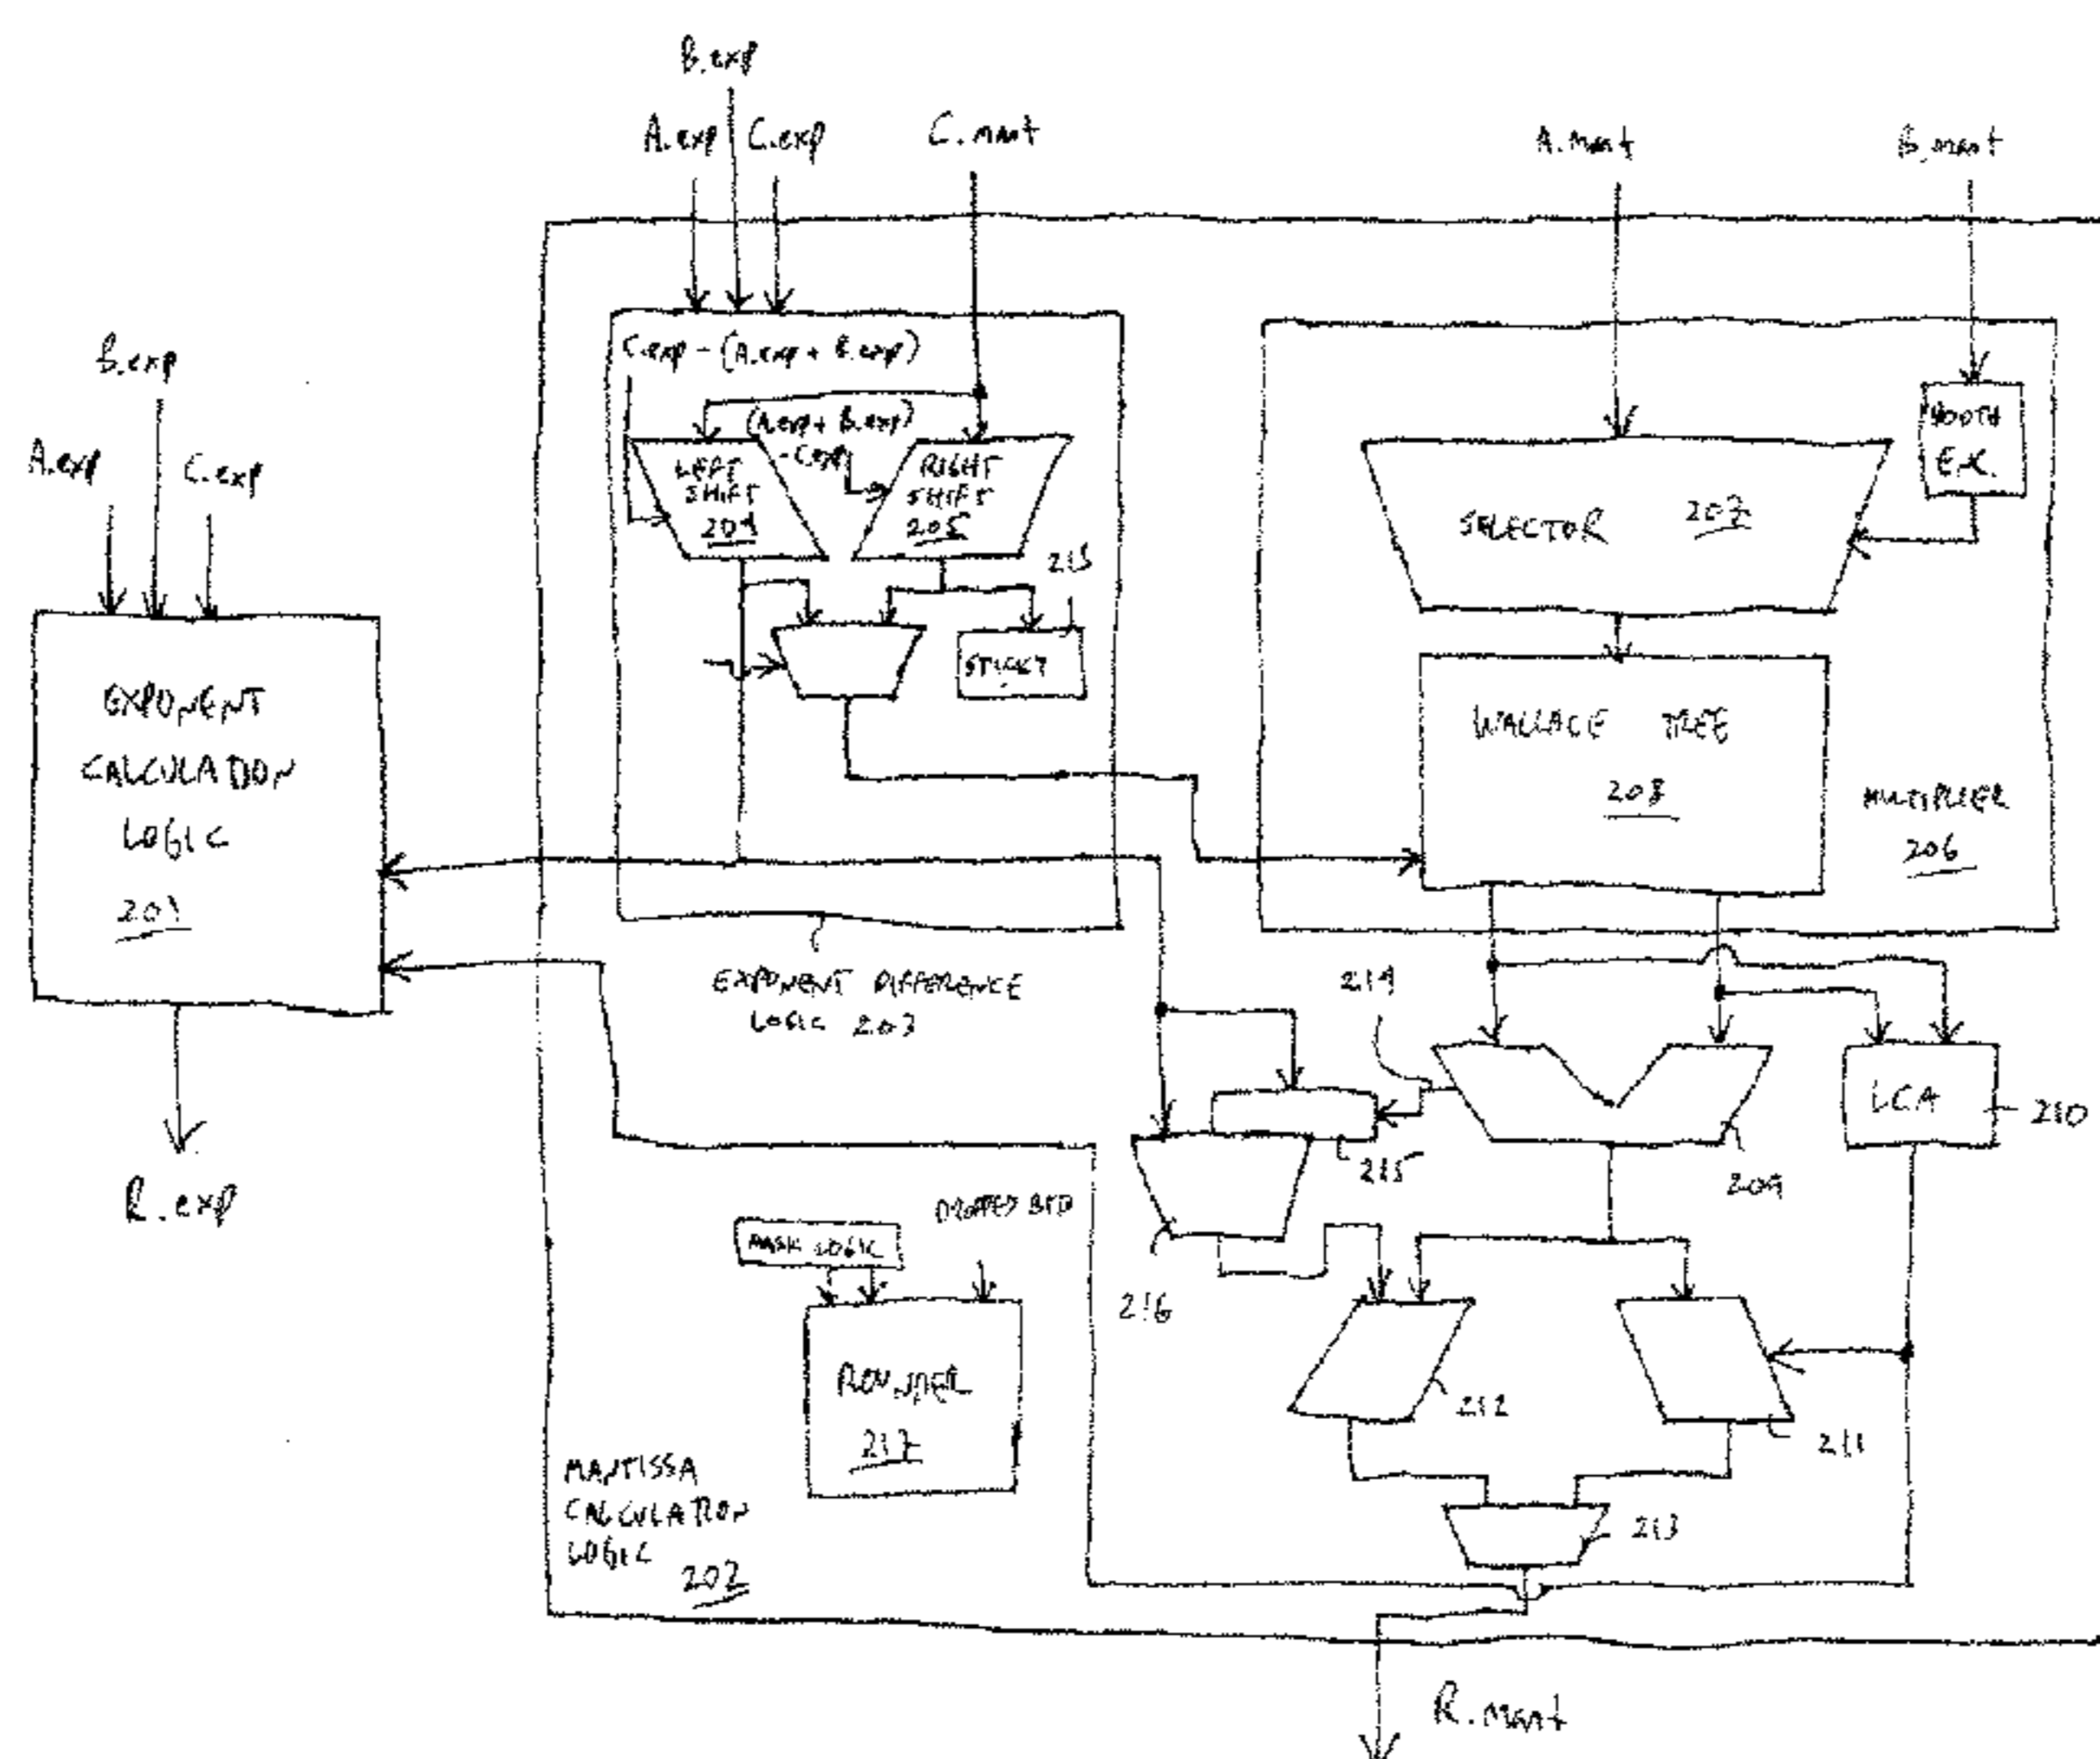 B.exp
A.exp
C.exp
C.mant
A.mant
B.mant
C.exp - (A.exp + B.exp)
(A.exp + B.exp)
- C.exp
LEFT
SHIFT
204
RIGHT
SHIFT
205
215
STICKY
BOOTH
SELECTOR 207
WALLACE TREE
208
MULTIPLIER
206
B.exp
A.exp
C.exp
EXPONENT
CALCULATION
LOGIC
201
R.exp
EXPONENT DIFFERENCE
LOGIC 203
214
LCA
210
215
209
216
DROPPED BITS
MASK LOGIC
ROUNDER
217
212
211
213
MANTISSA
CALCULATION
LOGIC
202
R.mant